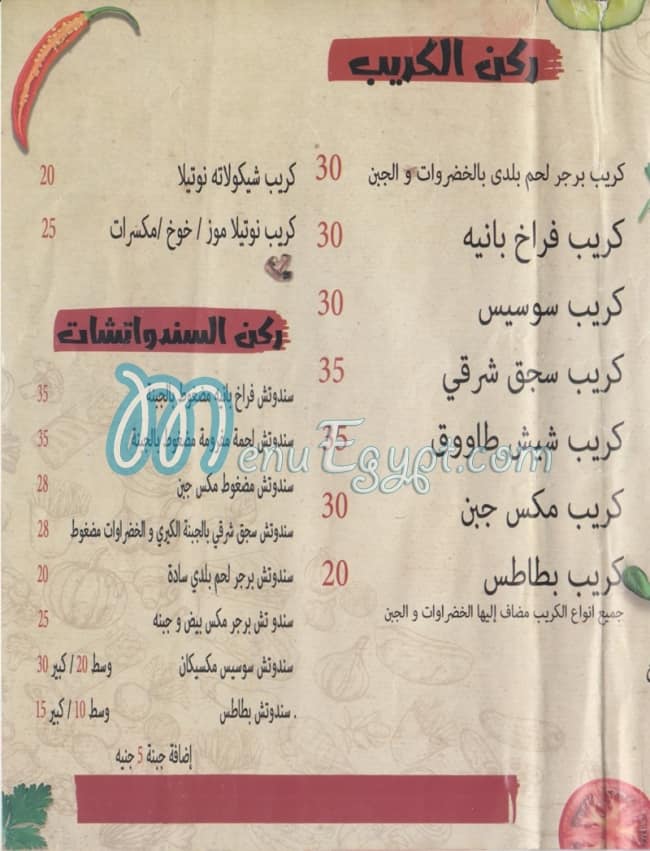 ركن الكريب
كريب برجر لحم بلدى بالخضروات و الجبن 30
كريب فراخ بانيه 30
كريب سوسيس 30
كريب سجق شرقي 35
كريب شيش طاووق 35
كريب مكس جبن 30
كريب بطاطس 20
جميع انواع الكريب مضاف إليها الخضراوات و الجبن
كريب شيكولاته نوتيلا 20
كريب نوتيلا موز / خوخ /مكسرات 25
ركن السندواتشات
سندوتش فراخ بانية مضغوط بالجبنة 35
سندوتش لحمة مفرومة مضغوط بالجبنة 35
سندوتش مضغوط مكس جبن 28
سندوتش سجق شرقي بالجبنة الكيري و الخضراوات مضغوط 28
سندوتش برجر لحم بلدي سادة 20
سندو تش برجر مكس بيض و جبنه 25
سندوتش سوسيس مكسيكان وسط 20 / كبير 30
. سندوتش بطاطس وسط 10 / كبير 15
إضافة جبنة 5 جنيه
MenuEgypt.com